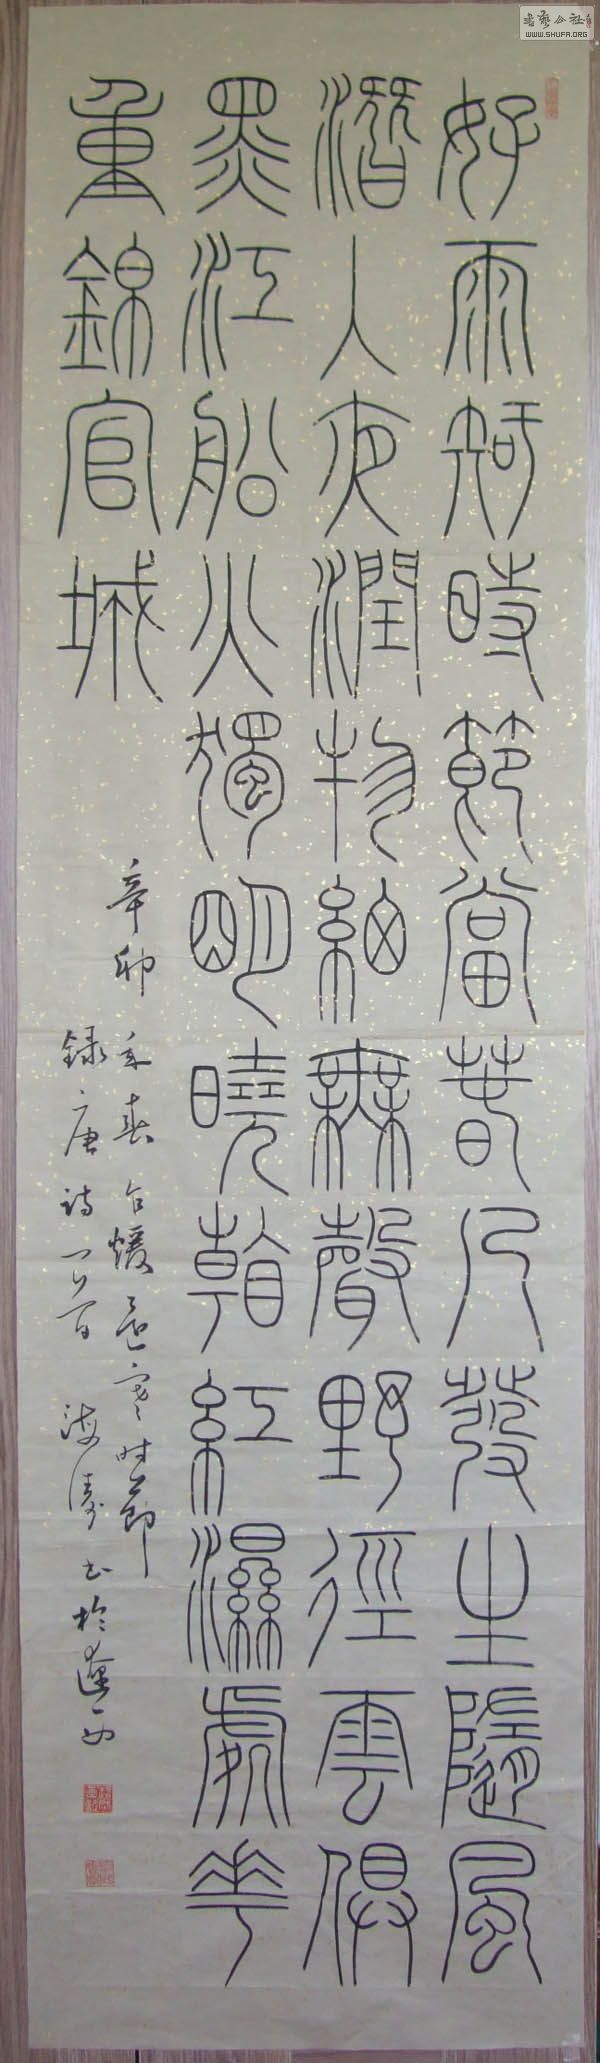 好雨知時節當春乃發生隨風
潛入夜潤物細無聲野徑雲俱
黑江船火獨明曉看紅濕處花
重錦官城
辛卯年春乍暖還寒時節
錄唐詩一首 海濤書於遼西
書藝公社
WWW.SHUFA.ORG